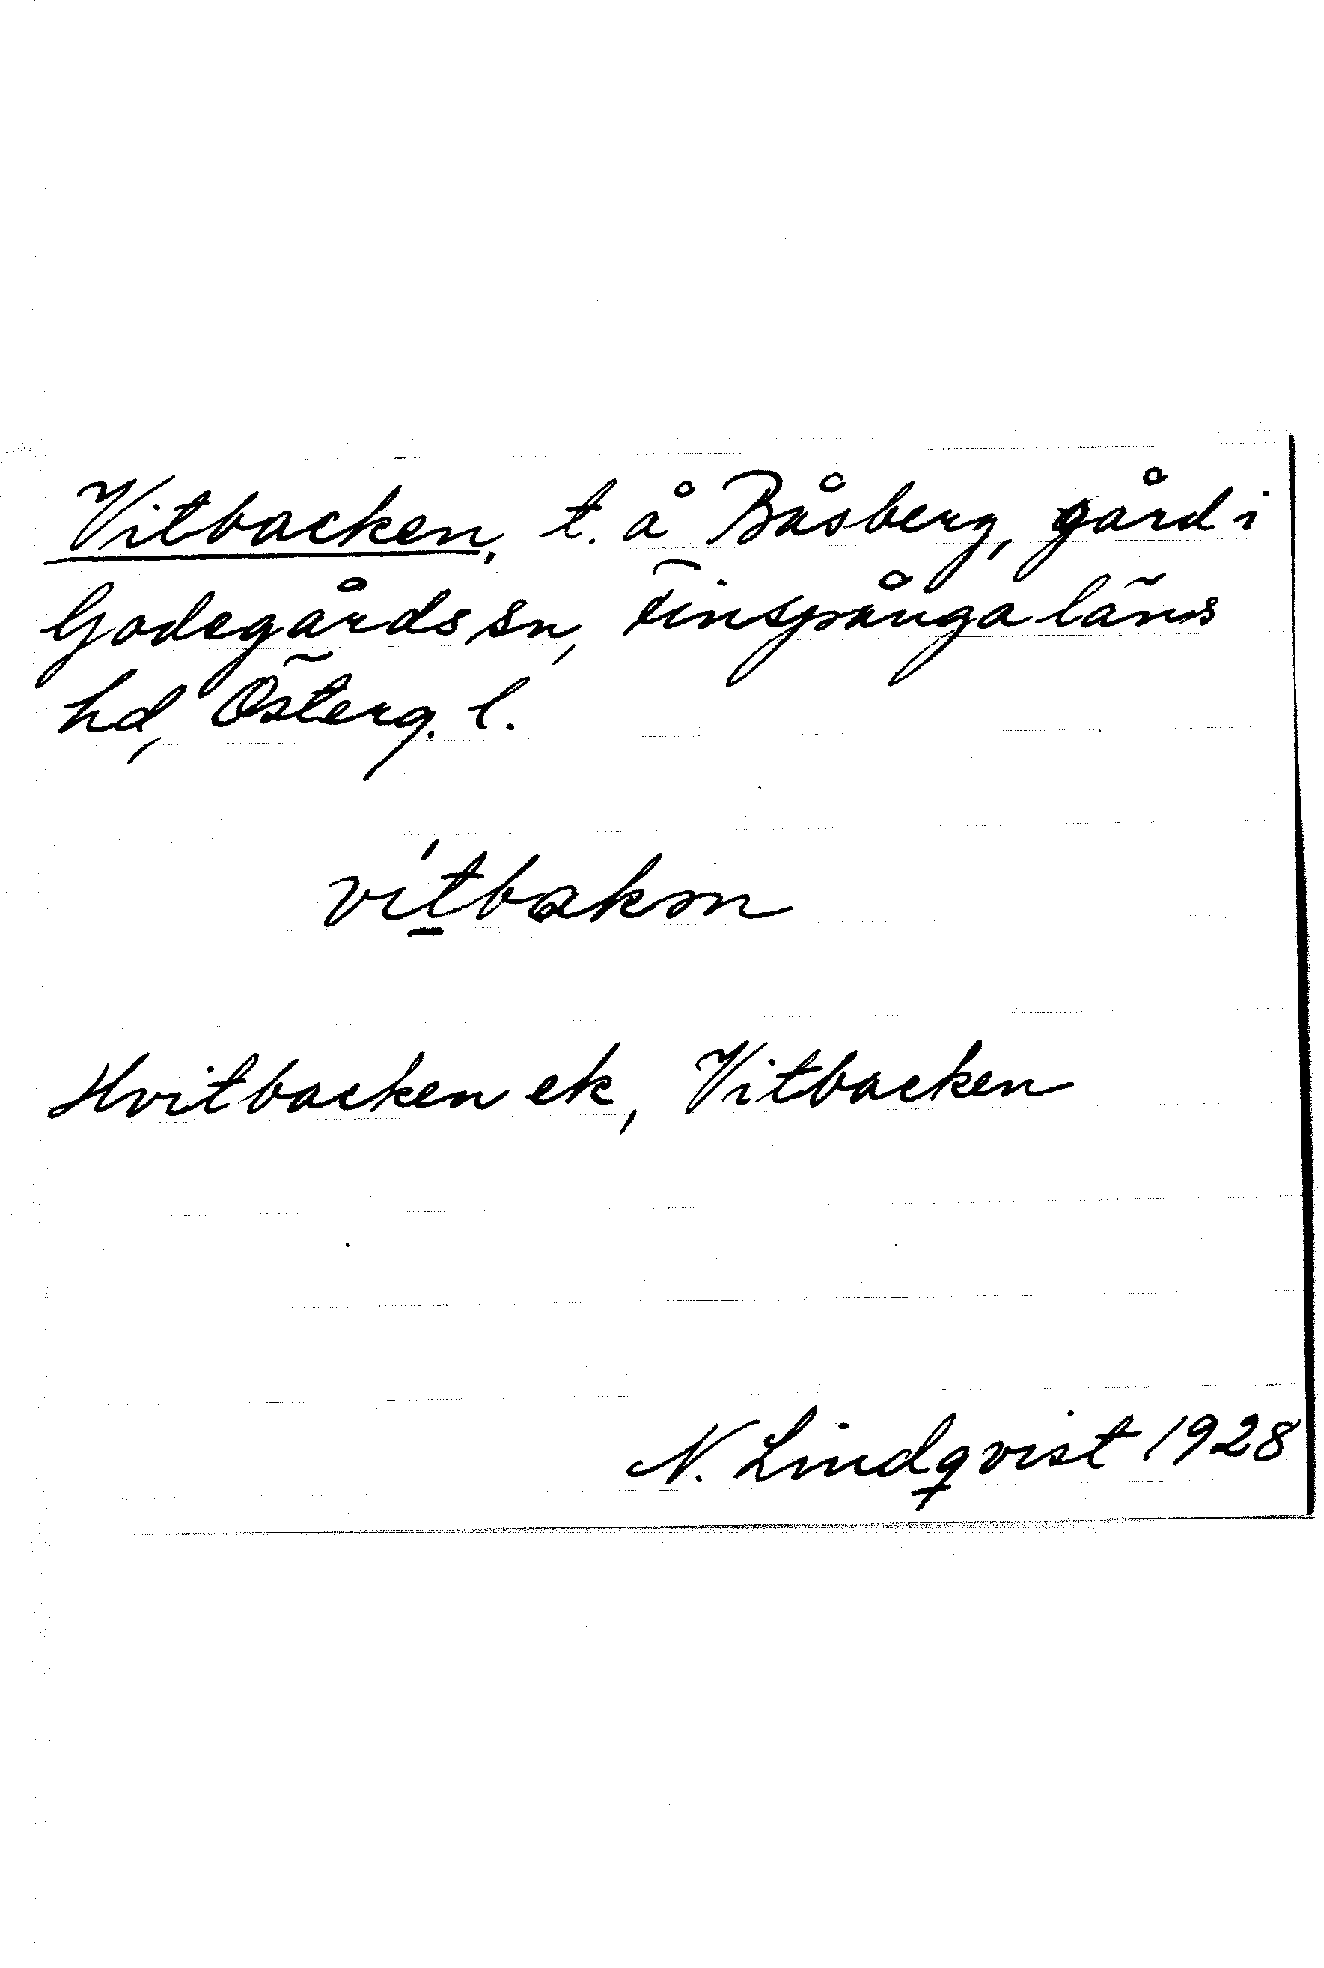 Vitbacken, t. å Båsberg, gård i
Godegårds sn, Finspånga läns
hd, Österg. l.
vítbakən
Hvitbacken ek, Vitbacken
N. Lindqvist 1928